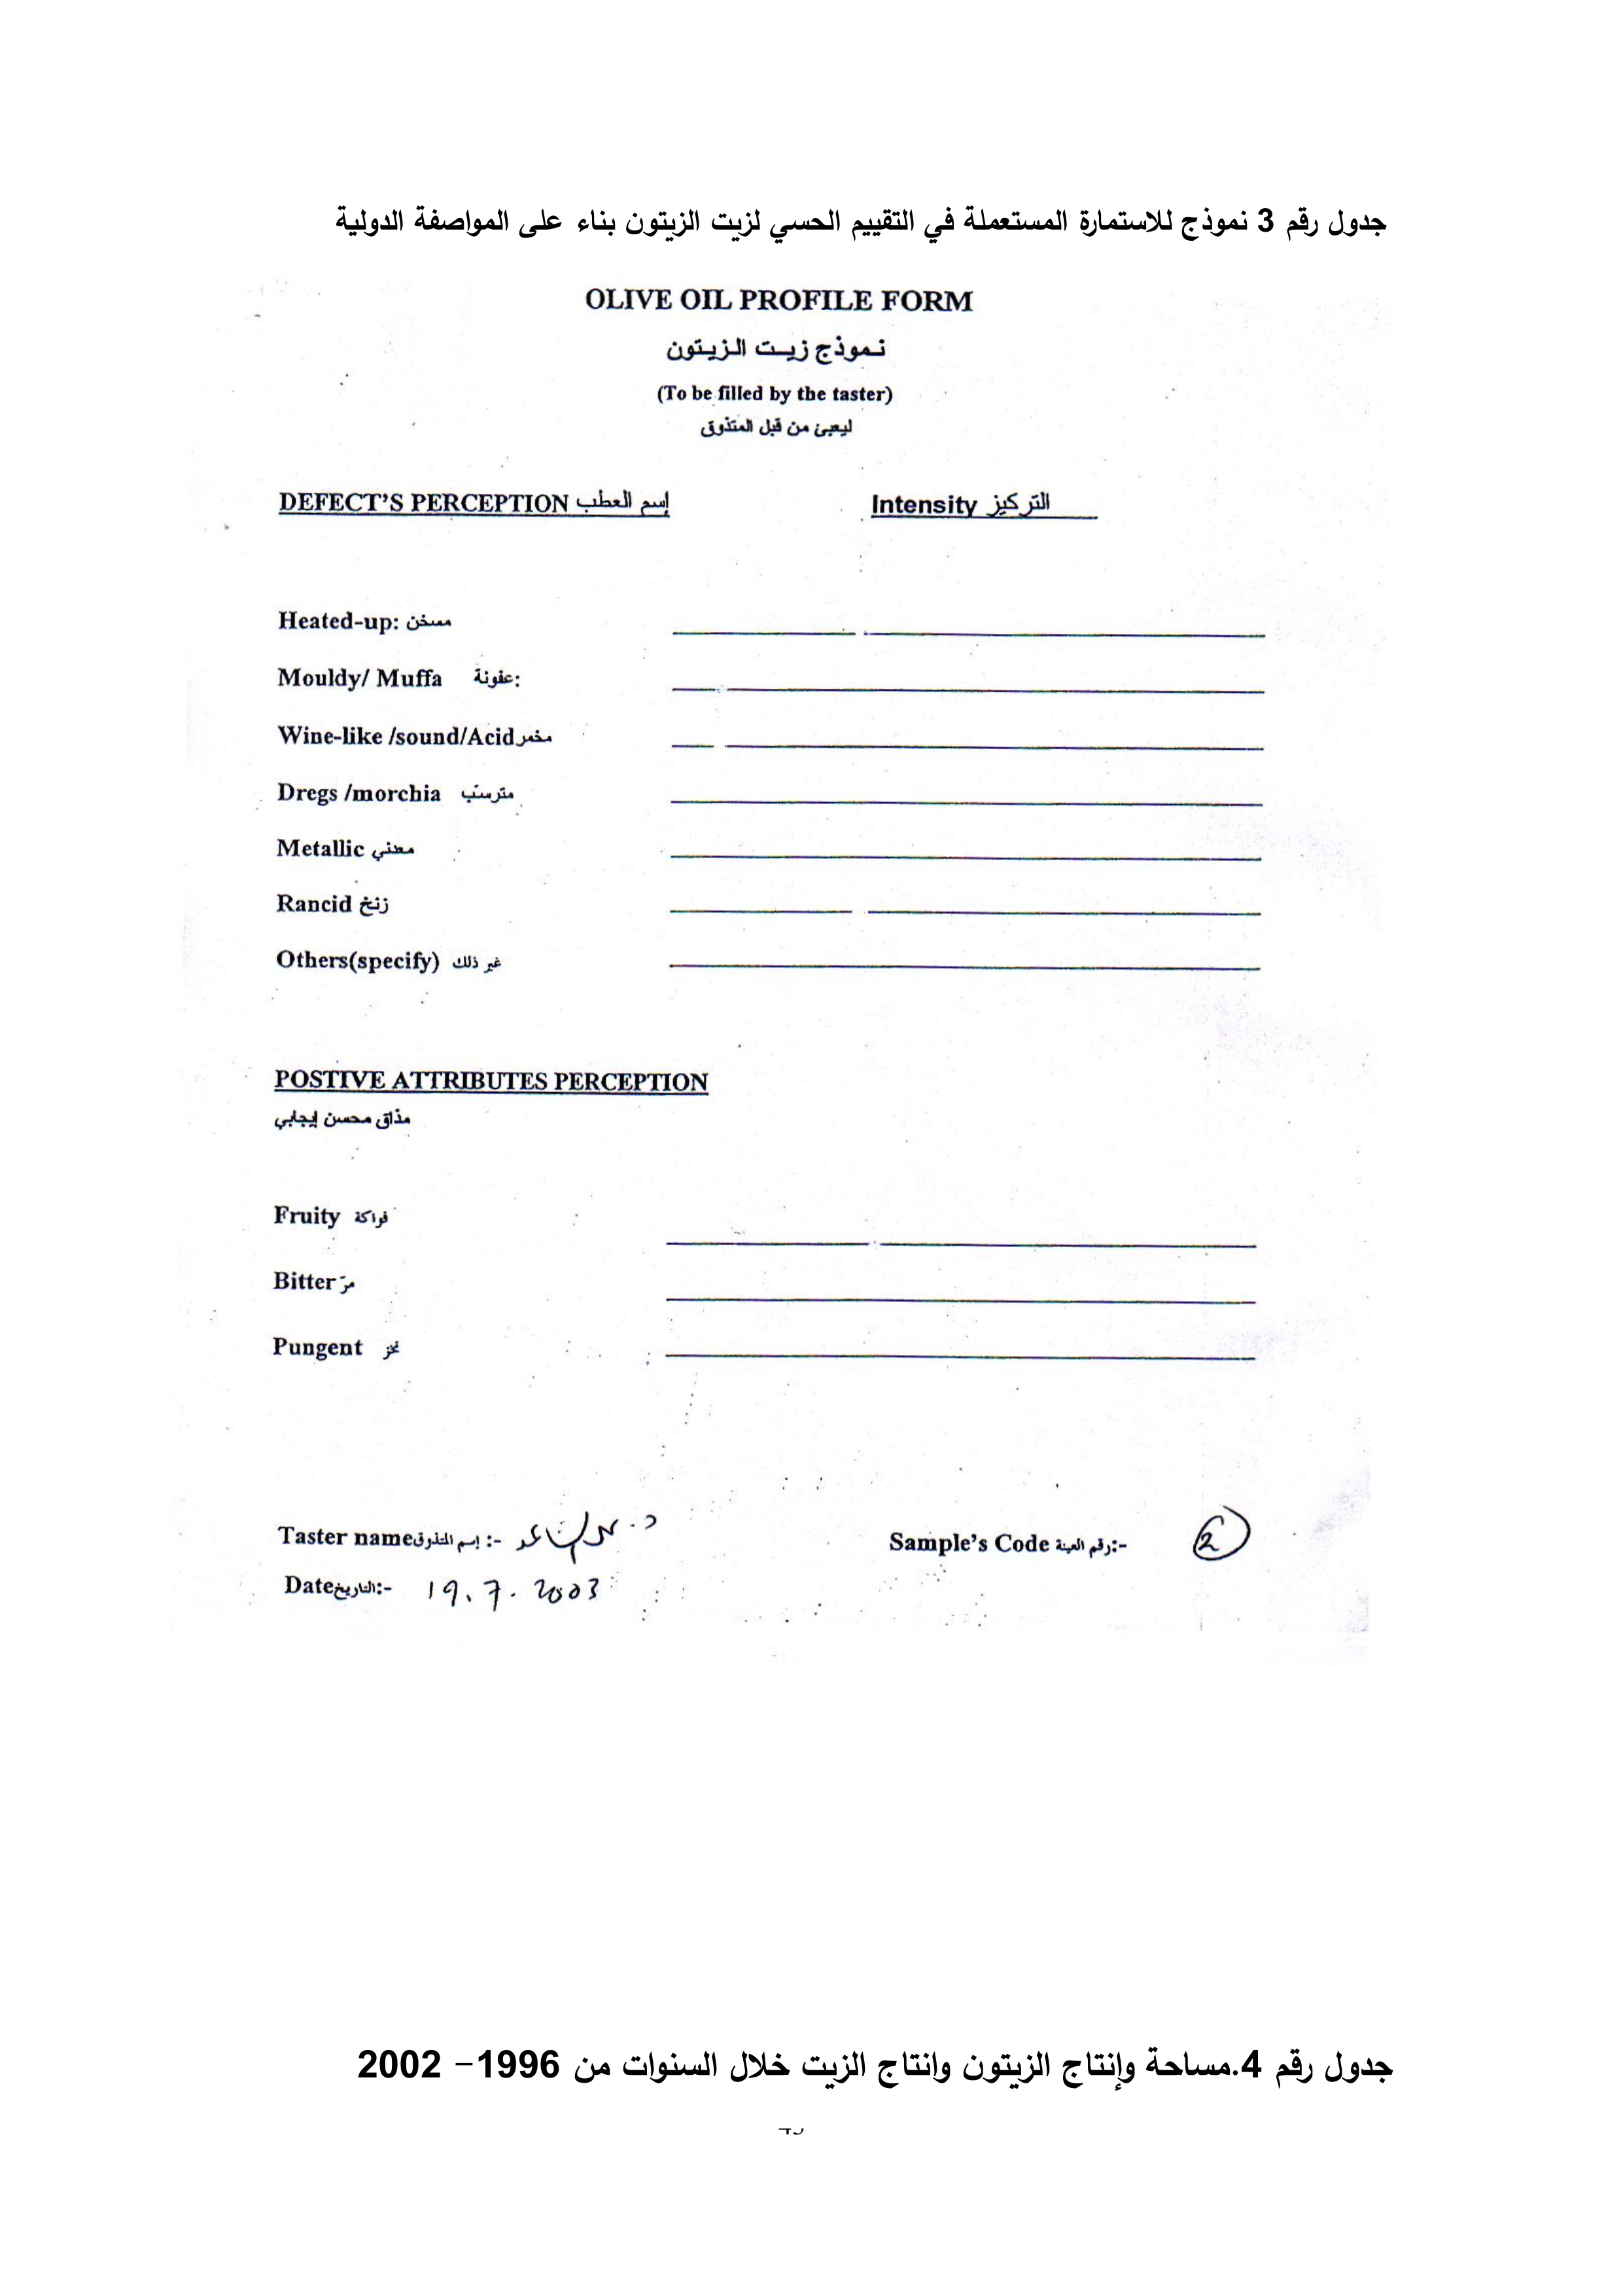 جدول رقم 3 نموذج للاستمارة المستعملة في التقييم الحسي لزيت الزيتون بناء على المواصفة الدولية
OLIVE OIL PROFILE FORM
نموذج زيت الزيتون
(To be filled by the taster)
ليعبئ من قبل المتذوق
DEFECT'S PERCEPTION إسم العطب Intensity التركيز
Heated-up: مسخن
Mouldy/ Muffa عفونة:
Wine-like /sound/Acid مخمر
Dregs /morchia مترسّب
Metallic معدني
Rancid زنخ
Others(specify) غير ذلك
POSTIVE ATTRIBUTES PERCEPTION
مذاق محسن إيجابي
Fruity فواكة
Bitter مرّ
Pungent نخز
Taster name إسم المتذوق :- د. Sample's Code رقم العينة:- 2
Date التاريخ:- 19.7.2003
جدول رقم 4.مساحة وإنتاج الزيتون وانتاج الزيت خلال السنوات من 1996– 2002